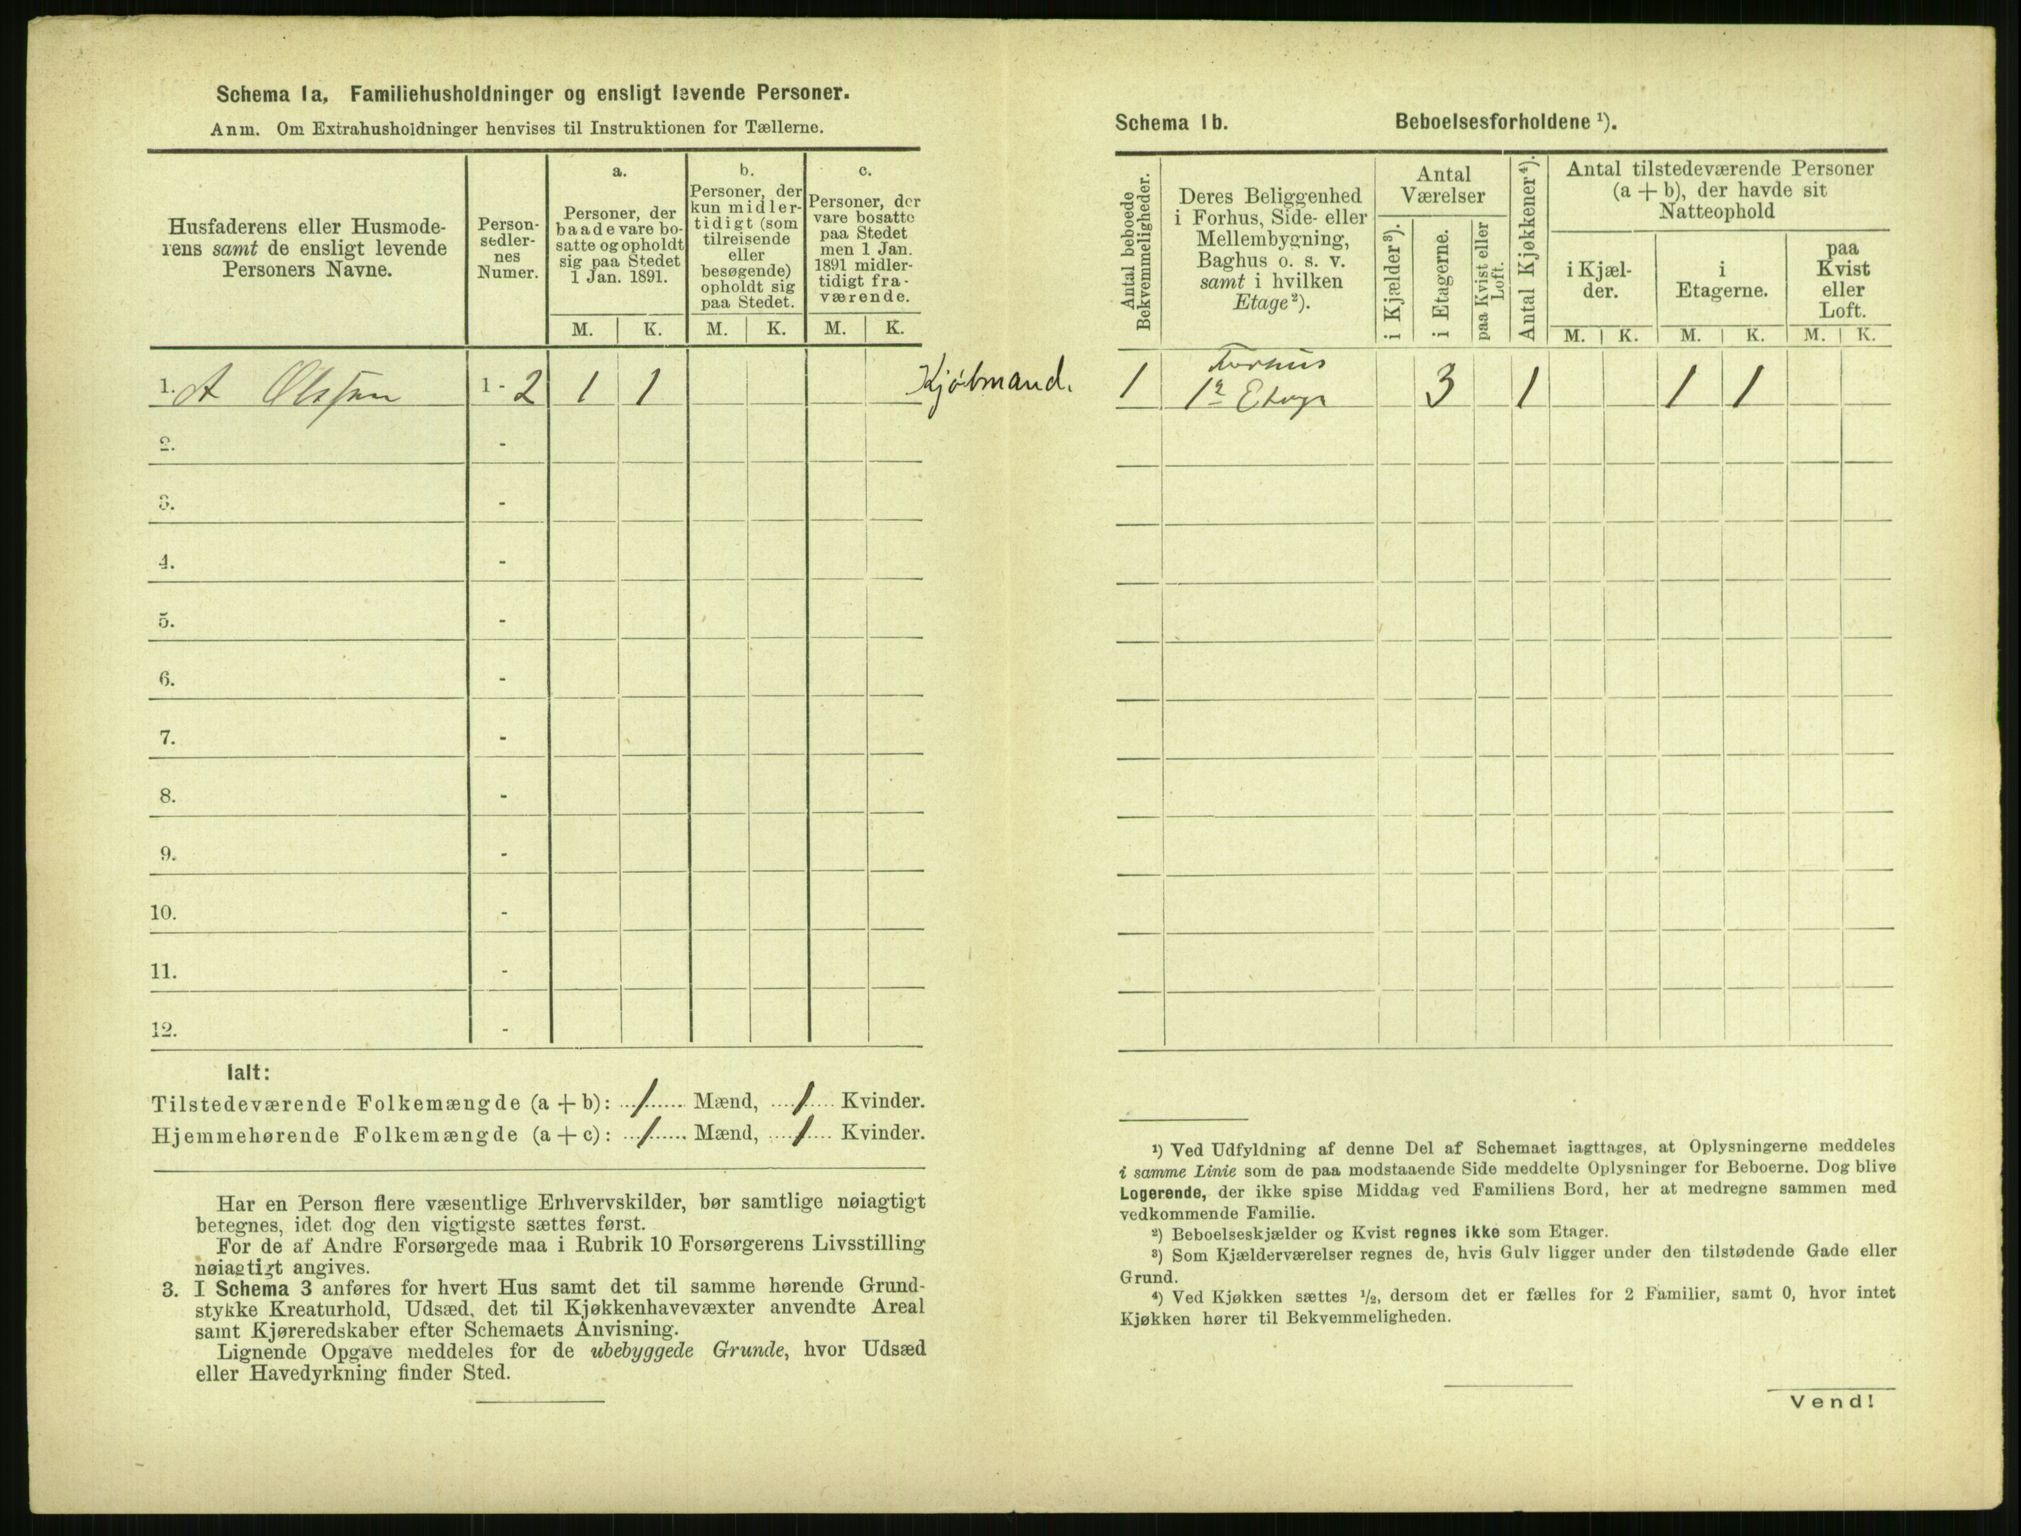 Schema 1a, Familiehusholdninger og ensligt levende Personer.
Anm. Om Extrahusholdninger henvises til Instruktionen for Tællerne.
Husfaderens eller Husmode-
rens samt de ensligt levende
Personers Navne.
Person-
sedler-
nes
Numer.
a.
Personer, der
baade vare bo-
satte og opholdt
sig paa Stedet
1 Jan. 1891.
b.
Personer, der
kun midler-
tidigt (som
tilreisende
eller
besøgende)
opholdt sig
paa Stedet.
c.
Personer, der
vare bosatte
paa Stedet
men 1 Jan.
1891 midler-
tidigt fra-
værende.
M. K. M. K. M. K.
1. A Olsen 1 - 2 1 1 Kjøbmand.
2. -
3. -
4. -
5. -
6. -
7. -
8. -
9. -
10. -
11. -
12. -
Ialt:
Tilstedeværende Folkemængde (a + b): 1 Mænd, 1 Kvinder.
Hjemmehørende Folkemængde (a + c): 1 Mænd, 1 Kvinder.
Har en Person flere væsentlige Erhvervskilder, bør samtlige nøiagtigt
betegnes, idet dog den vigtigste sættes først.
For de af Andre Forsørgede maa i Rubrik 10 Forsørgerens Livsstilling
nøiagtigt angives.
3. I Schema 3 anføres for hvert Hus samt det til samme hørende Grund-
stykke Kreaturhold, Udsæd, det til Kjøkkenhavevæxter anvendte Areal
samt Kjøreredskaber efter Schemaets Anvisning.
Lignende Opgave meddeles for de ubebyggede Grunde, hvor Udsæd
eller Havedyrkning finder Sted.
Schema 1b. Beboelsesforholdene ¹).
Antal beboede
Bekvemmeligheder.
Deres Beliggenhed
i Forhus, Side- eller
Mellembygning,
Baghus o. s. v.
samt i hvilken
Etage²).
Antal
Værelser
i Kjælder³).
i Etagerne.
paa Kvist eller
Loft.
Antal Kjøkkener⁴).
Antal tilstedeværende Personer
(a + b), der havde sit
Natteophold
i Kjæl-
der.
i
Etagerne.
paa
Kvist
eller
Loft.
M. K. M. K. M. K.
1 Forhus
1ᵉ Etage 3 1 1 1
¹) Ved Udfyldning af denne Del af Schemaet iagttages, at Oplysningerne meddeles
i samme Linie som de paa modstaaende Side meddelte Oplysninger for Beboerne. Dog blive
Logerende, der ikke spise Middag ved Familiens Bord, her at medregne sammen med
vedkommende Familie.
²) Beboelseskjælder og Kvist regnes ikke som Etager.
³) Som Kjælderværelser regnes de, hvis Gulv ligger under den tilstødende Gade eller
Grund.
⁴) Ved Kjøkken sættes ½, dersom det er fælles for 2 Familier, samt 0, hvor intet
Kjøkken hører til Bekvemmeligheden.
Vend!